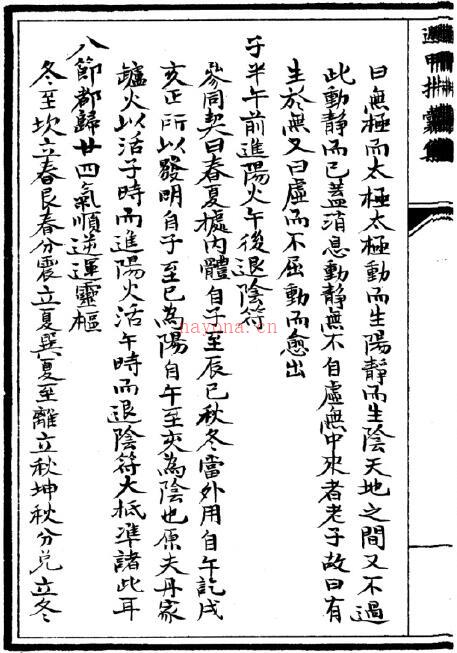 遁甲括囊集
曰無極而太極太極動而生陽靜而生陰天地之間又不過
此動靜而已蓋消息動靜無不自虛無中來者老子故曰有
生於無又曰虛而不屈動而愈出
子半午前進陽火午後退陰符
參同契曰春夏㯫內體自子至辰巳秋冬當外用自午訖戌
亥正所以發明自子至巳為陽自午至亥為陰也原夫丹家
鑪火以活子時而進陽火活午時而退陰符大抵準諸此耳
八節都歸廿四氣順逆運靈樞
冬至坎立春艮春分震立夏巽夏至離立秋坤秋分兌立冬
nayona.cn